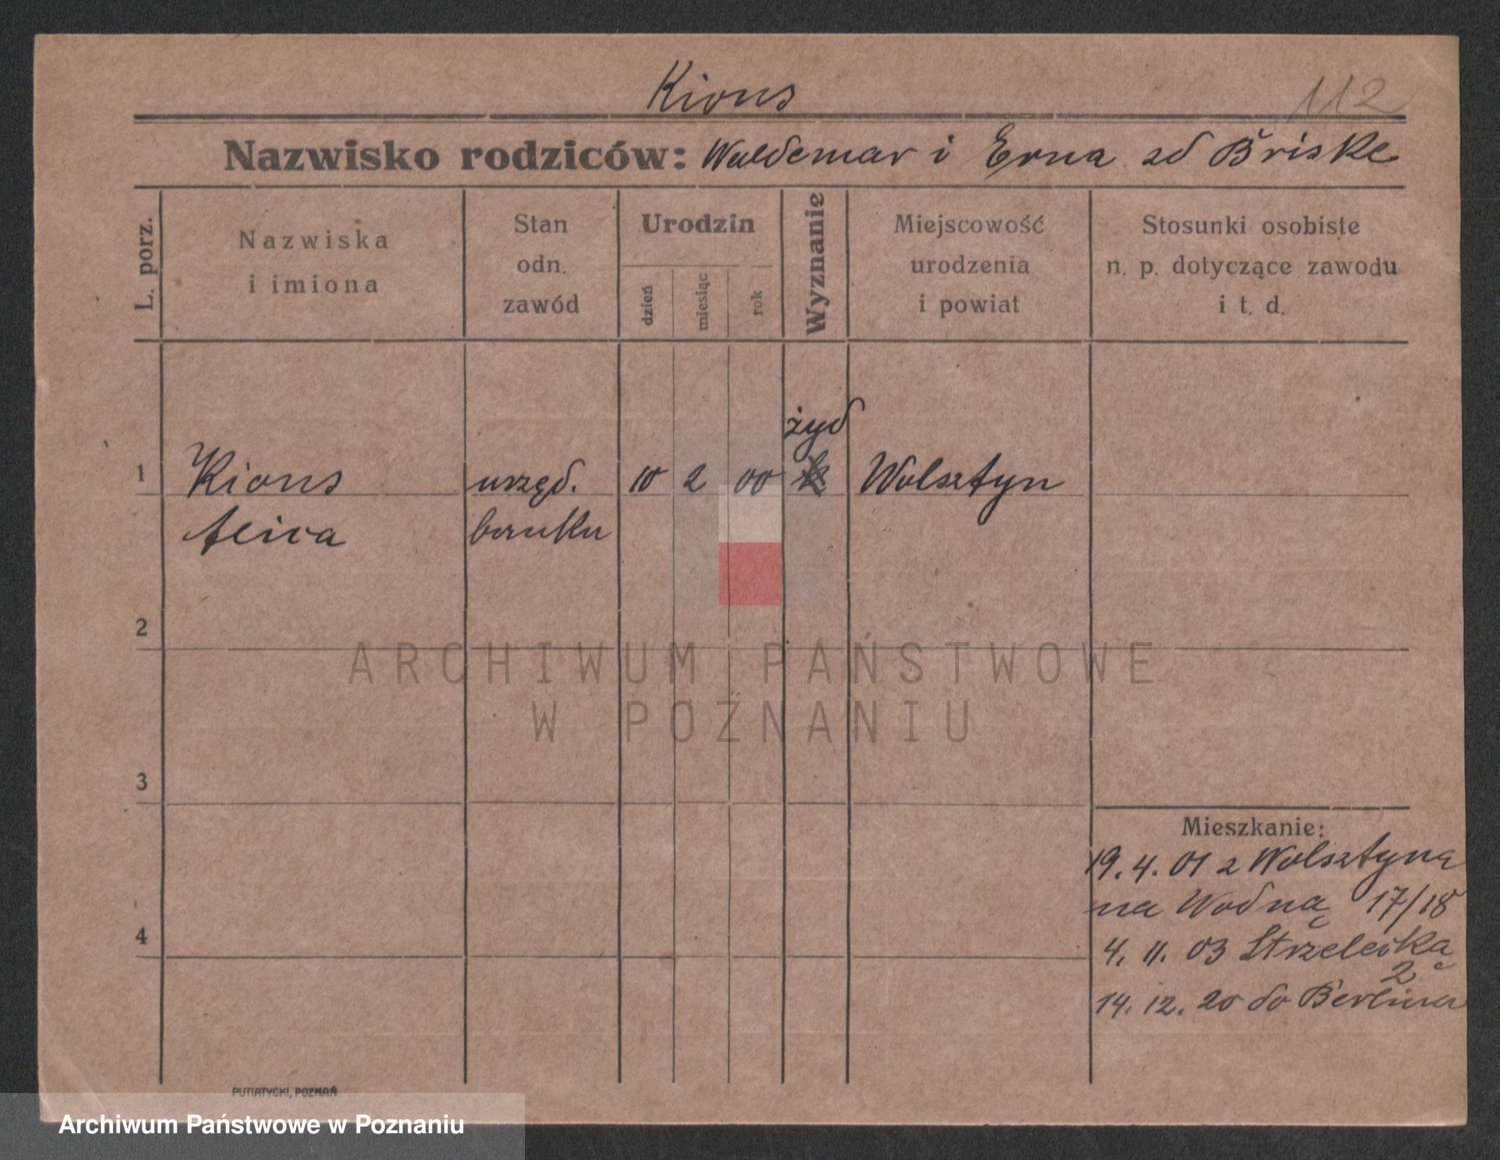 Kions
112
Nazwisko rodziców: Waldemar i Erna zd Briske
L. porz.
Nazwiska
i imiona
Stan
odn.
zawód
Urodzin
dzień
miesiąc
rok
Wyznanie
Miejscowość
urodzenia
i powiat
Stosunki osobiste
n. p. dotyczące zawodu
i t. d.
żyd
1 Kions urzęd. 10 2 00 k Wolsztyn
Alica banku
2
ARCHIWUM PAŃSTWOWE
W POZNANIU
3
Mieszkanie:
19. 4. 01 z Wolsztyna
na Wodną 17/18
4
4. 11. 03 Strzelecka
2
14. 12. 20 do Berlina
PUTIATYCKI, POZNAŃ
Archiwum Państwowe w Poznaniu